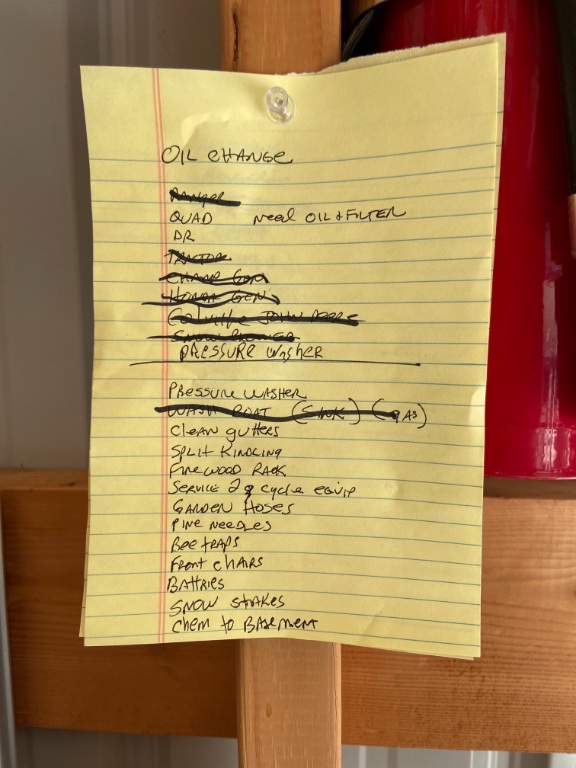 OIL CHANGE
RANGER
QUAD need OIL & FILTER
DR
TRACTOR
CHAMP GEN
HONDA GEN
JOHN DEERE
SNOW BLOWER
PRESSURE WASHER
PRESSURE WASHER
WASH BOAT (SINK) (GAS)
CLEAN gutters
SPLIT KINDLING
FIREWOOD RACK
SERVICE 2 cycle equip
GARDEN HOSES
PINE NEEDLES
Bee TRAPS
FRONT CHAIRS
BATTRIES
SNOW STAKES
Chem to BASEMENT